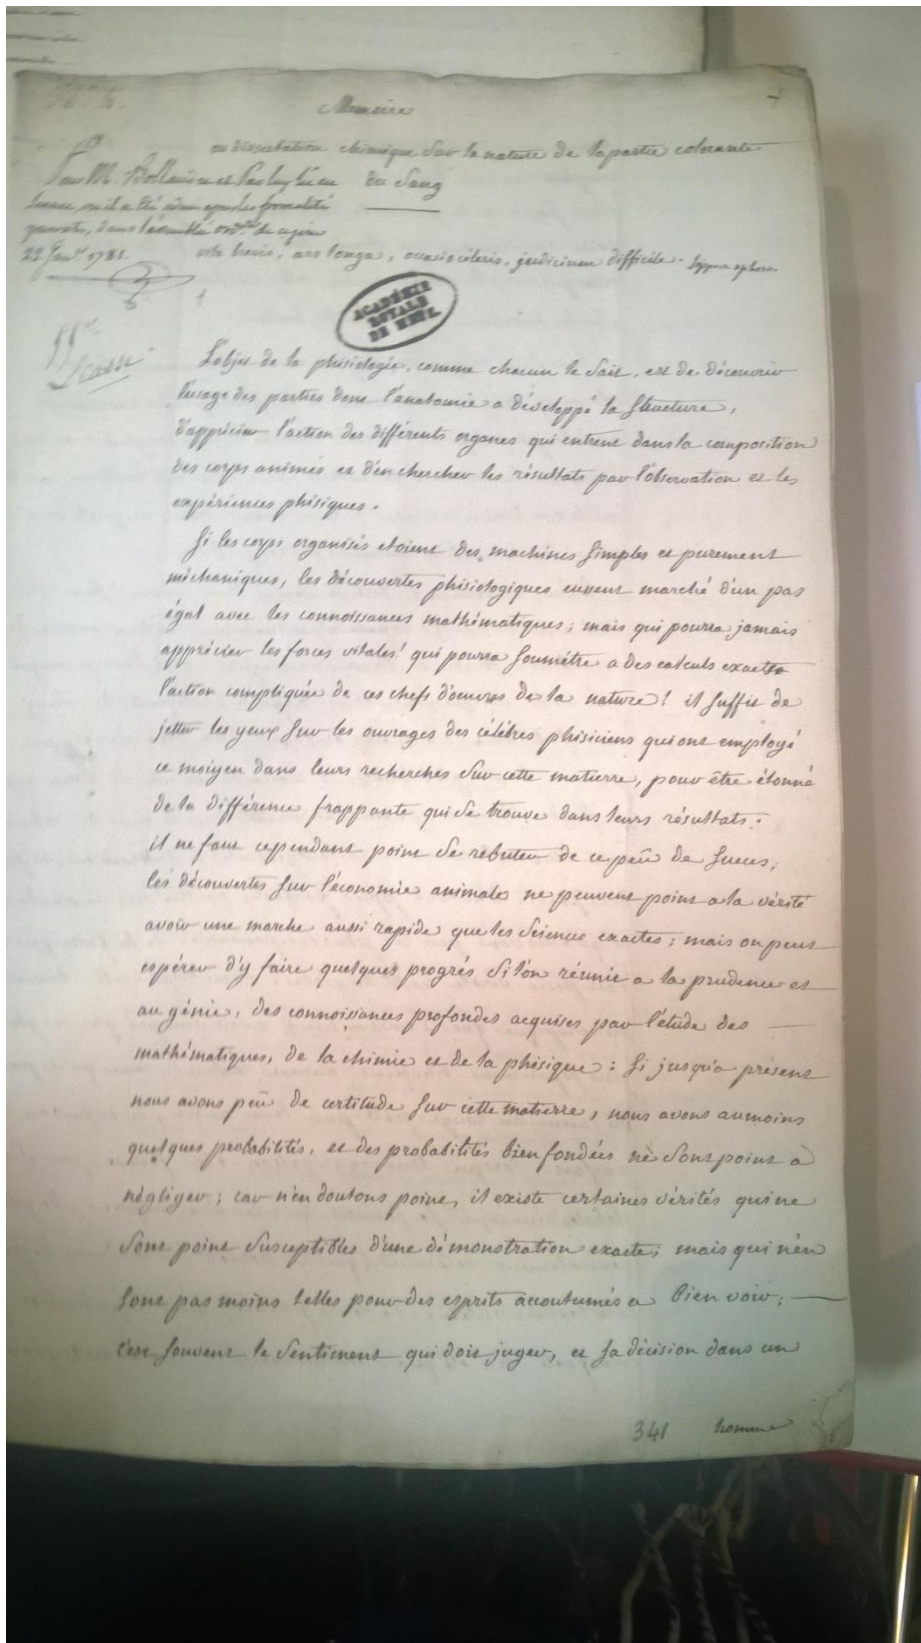 Memoire
ou dissertation chimique sur la nature de la partie colorante
du sang
Par M.
22 1781.
vita brevis, ars longa, occasio celeris, judicium difficile.
ACADÉMIE
ROYALE
DE
L'objet de la phisiologie, comme chacun le sait, est de découvrir
l'usage des parties dont l'anatomie a développé la structure,
d'apprécier l'action des différents organes qui entrent dans la composition
des corps animés et d'en chercher les résultats par l'observation et les
expériences phisiques.
Si les corps organisés etoient des machines simples et purement
méchaniques, les découvertes phisiologiques eussent marché d'un pas
égal avec les connoissances mathématiques; mais qui pourra jamais
apprécier les forces vitales! qui pourra soumétre a des calculs exacts
l'action compliquée de ces chefs d'oeuvres de la nature! il suffit de
jetter les yeux sur les ouvrages des célébres phisiciens qui ont employé
ce moiyen dans leurs recherches sur cette matierre, pour être étonné
de la différence frappante qui se trouve dans leurs résultats.
il ne faut cependant point se rebuter de ce peü de succes;
les découvertes sur l'économie animale ne peuvent point a la vérité
avoir une marche aussi rapide que les sciences exactes; mais on peut
espérer d'y faire quelques progrés si l'on réunit a la prudence et
au génie, des connoissances profondes acquises par l'étude des
mathématiques, de la chimie et de la phisique: si jusqu'a présent
nous avons peü de certitude sur cette matierre, nous avons aumoins
quelques probabilités, et des probabilités bien fondées ne sont point à
négliger; car n'en doutons point, il existe certaines vérités qui ne
sont point susceptibles d'une démonstration exacte; mais qui n'en
sont pas moins telles pour des esprits accoutumés a bien voir;
c'est souvent le sentiment qui doit juger, et sa décision dans un
341 homme